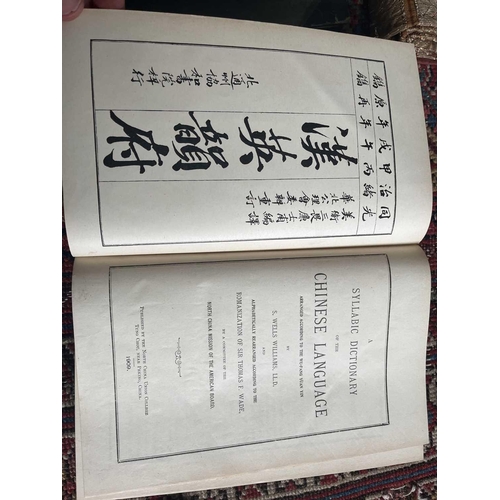 同治甲戌年原鐫
光緒丙午年再鐫
美衛三畏廉士甫編譯
華北公理會委辦重訂
漢英韻府
北通州協和書院梓行
A
SYLLABIC DICTIONARY
OF THE
CHINESE LANGUAGE
ARRANGED ACCORDING TO THE WU-FANG YUAN YIN
BY
S. WELLS WILLIAMS, LL.D.
AND
ALPHABETICALLY REARRANGED ACCORDING TO THE
ROMANIZATION OF SIR THOMAS F. WADE,
BY A COMMITTEE OF THE
NORTH CHINA MISSION OF THE AMERICAN BOARD.
PUBLISHED BY THE NORTH CHINA UNION COLLEGE
TUNG CHOU, NEAR PEKING, CHINA.
1909.